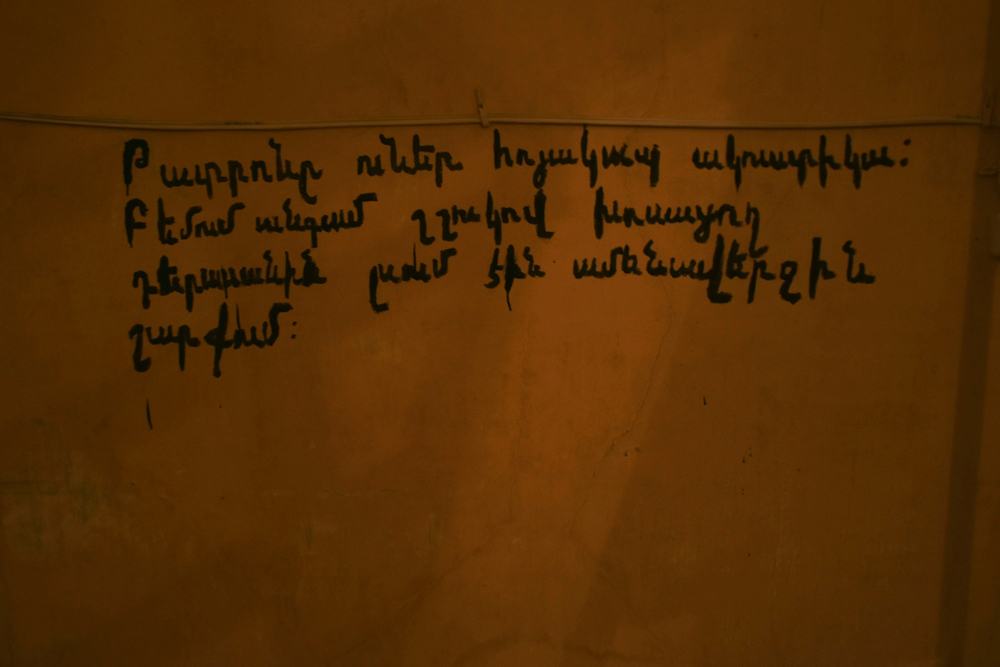 Թատրոնը ուներ հոյակապ ակուստիկա:
Բեմում անգամ շշուկով խոսացող
դերասանին լսում էին ամենավերջին
շարքում: